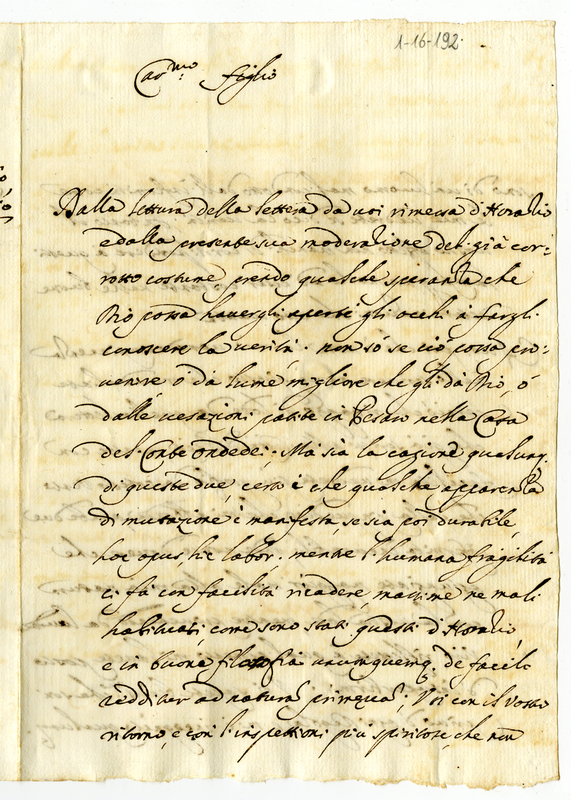 1-16-192.
Car.mo figlio
Dalla lettura della lettera da voi rimessa d'Horatio
e dalla presente sua moderatione del già cor-
rotto costume prendo qualche speranza che
Dio possa havergli aperti gli occhi à fargli
conoscere la verità. non sò se ciò possa pro-
venire ò da lume migliore che gli dà Dio, ò
dalle vesazioni patite in Pesaro nella Casa
del Conte Ondedei. Mà sia la cagione qualunq.
di queste due, certo è che qualche apparenza
di mutazione è manifesta, se sia poi durabile,
hoc opus, hic labor. mentre l'humana fragilità
ci fà con facilità ricadere, massime ne mali
habituati, come sono stati questi d'Horatio,
e in buona filosofia unumquemq. de facili
reddiver ad natura primeva; Voi con il vostro
ritorno, e con l'inspettioni più spiritose, che non